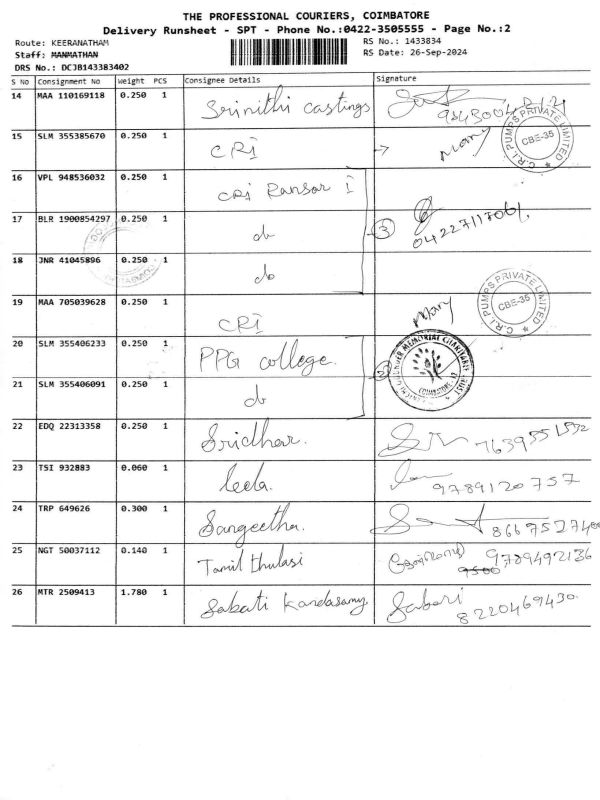 THE PROFESSIONAL COURIERS, COIMBATORE
Delivery Runsheet - SPT - Phone No.:0422-3505555 - Page No.:2
Route: KEERANATHAM RS No.: 1433834
Staff: MANMATHAN RS Date: 26-Sep-2024
DRS No.: DCJB143383402
S No Consignment No Weight PCS Consignee Details Signature
14 MAA 110169118 0.250 1 Srinithi castings
15 SLM 355385670 0.250 1 CRI Mary
C.R.I. PUMPS PRIVATE LIMITED CBE-35
16 VPL 948536032 0.250 1 CRI Ransar I
17 BLR 1900854297 0.250 1 do 3 04227117061
18 JNR 41045896 0.250 1 do
19 MAA 705039628 0.250 1 CRI Mary
C.R.I. PUMPS PRIVATE LIMITED CBE-35
20 SLM 355406233 0.250 1 PPG college
MEMORIAL CHARITABLE TRUST
21 SLM 355406091 0.250 1 do
22 EDQ 22313358 0.250 1 Sridhar. 7639551532
23 TSI 932883 0.060 1 leela. 9789120757
24 TRP 649626 0.300 1 Sangeetha.
25 NGT 50037112 0.140 1 Tamil thulasi 9789492136
26 MTR 2509413 1.780 1 Sabati Kandasamy Sabari 8220469430